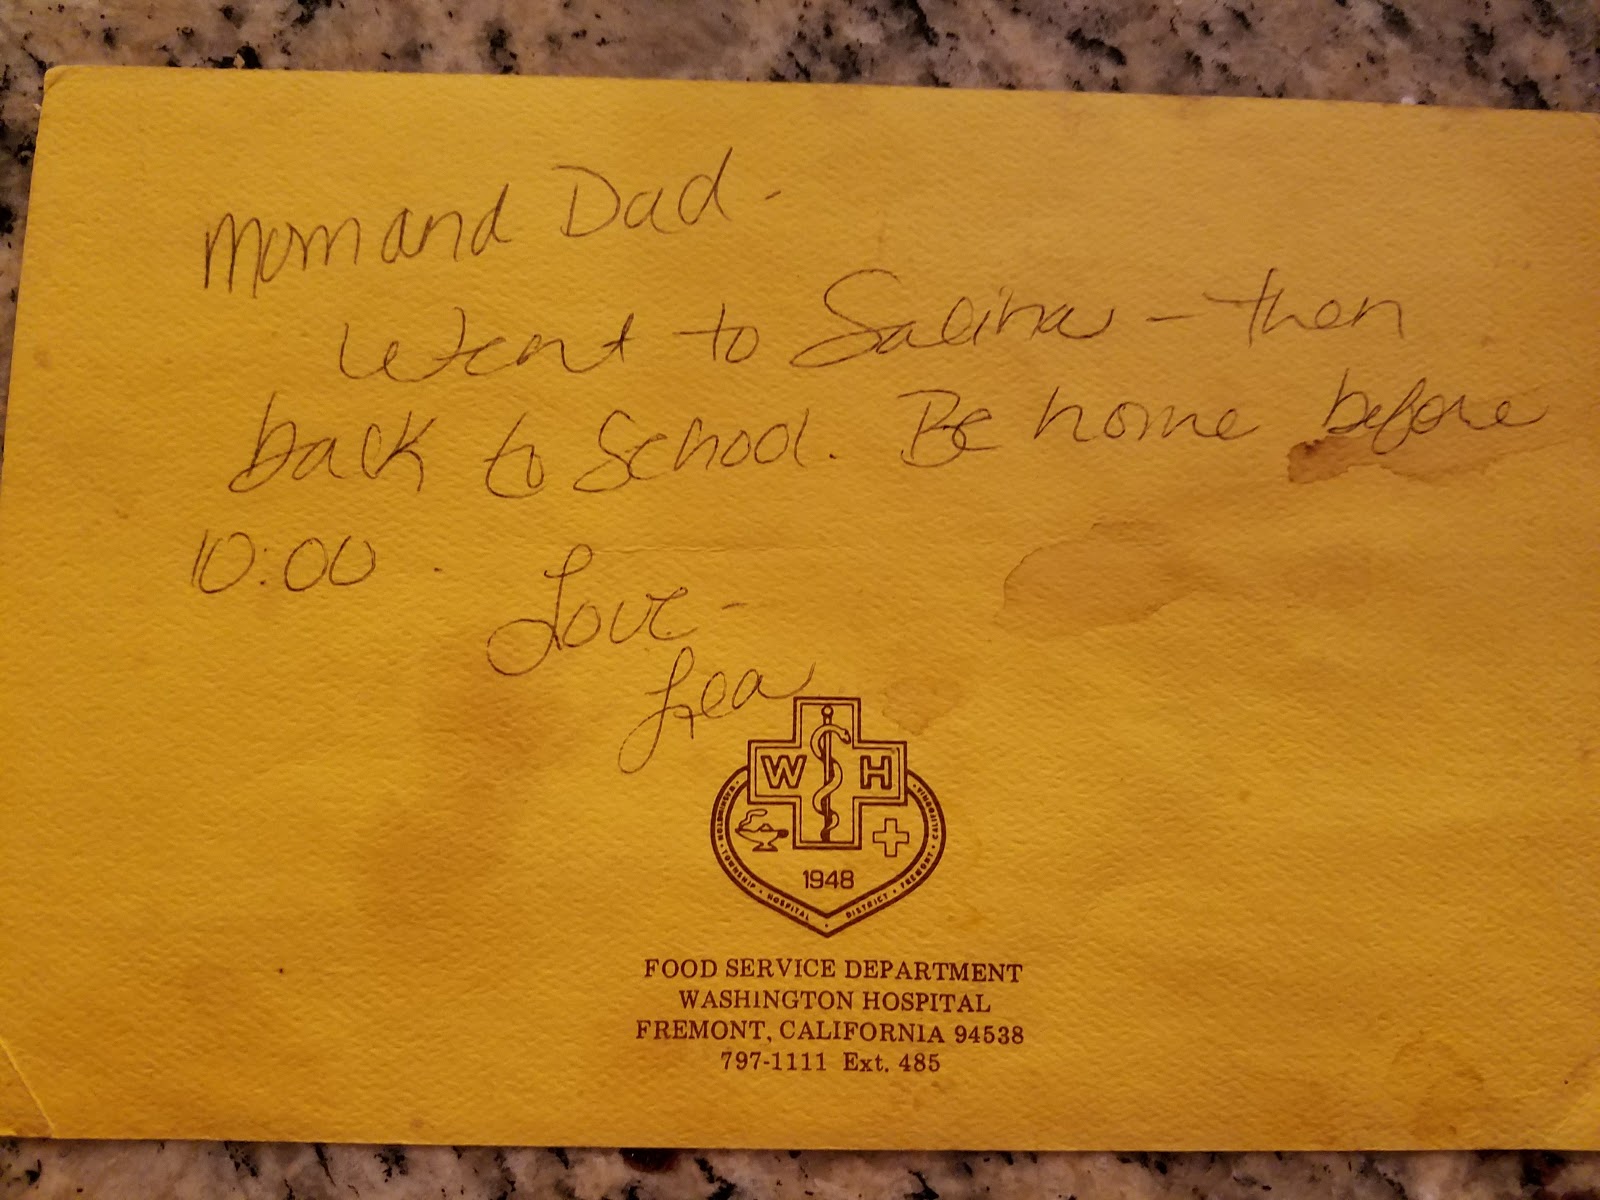 Mom and Dad -
Went to Salina - then
back to School. Be home before
10:00.
Love -
Lea
W H
1948
WASHINGTON • TOWNSHIP • HOSPITAL • DISTRICT • FREMONT, CALIFORNIA
FOOD SERVICE DEPARTMENT
WASHINGTON HOSPITAL
FREMONT, CALIFORNIA 94538
797-1111 Ext. 485